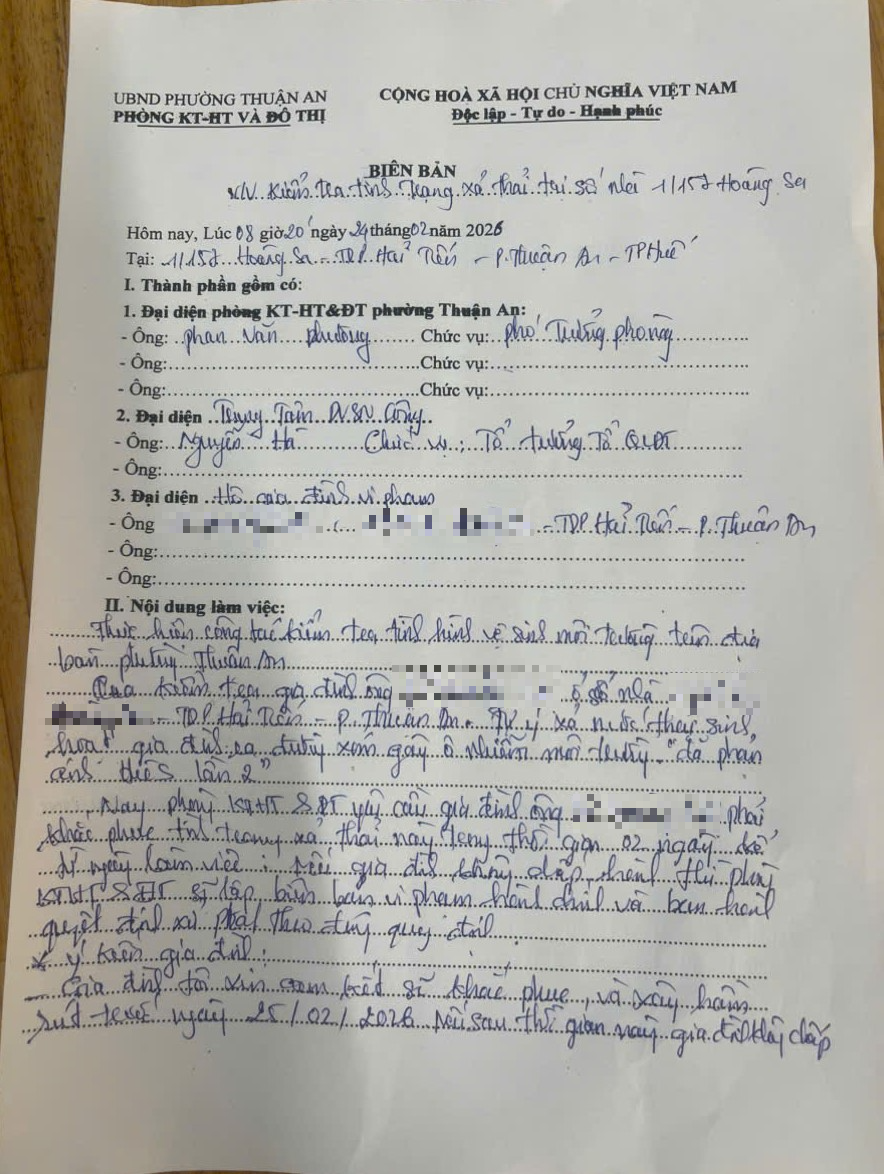 UBND PHƯỜNG THUẬN AN
PHÒNG KT-HT VÀ ĐÔ THỊ
CỘNG HOÀ XÃ HỘI CHỦ NGHĨA VIỆT NAM
Độc lập - Tự do - Hạnh phúc
BIÊN BẢN
V/v Kiểm tra tình trạng xả thải tại số nhà 1/157 Hoàng Sa
Hôm nay, Lúc 08 giờ 20' ngày 24 tháng 02 năm 2026
Tại: 1/157 Hoàng Sa - TDP Hải Tiến - P. Thuận An - TP Huế
I. Thành phần gồm có:
1. Đại diện phòng KT-HT&ĐT phường Thuận An:
- Ông: Phan Văn Phường Chức vụ: Phó Trưởng phòng
- Ông: Chức vụ:
- Ông: Chức vụ:
2. Đại diện Trung Tâm DVSN Công
- Ông: Nguyễn Hà Chức vụ: Tổ trưởng Tổ QLĐT
- Ông:
3. Đại diện Hộ gia đình vi phạm
- Ông - TDP Hải Tiến - P. Thuận An
- Ông:
- Ông:
II. Nội dung làm việc:
Thực hiện công tác kiểm tra tình hình vệ sinh môi trường trên địa
bàn phường Thuận An
Qua kiểm tra gia đình ông ở số nhà
- TDP Hải Tiến - P. Thuận An. Tự ý xả nước thải sinh
hoạt gia đình ra đường xóm gây ô nhiễm môi trường. "đã phản
ánh lần 2"
Nay phòng KTHT & ĐT yêu cầu gia đình ông phải
khắc phục tình trạng xả thải này trong thời gian 02 ngày kể
từ ngày làm việc: Nếu gia đình không chấp hành thì phòng
KTHT & ĐT sẽ lập biên bản vi phạm hành chính và ban hành
quyết định xử phạt theo đúng quy định
* Ý kiến gia đình:
- Gia đình tôi xin cam kết sẽ khắc phục, và xây hầm
rút trước ngày 25/02/2026 Nếu sau thời gian này gia đình không chấp